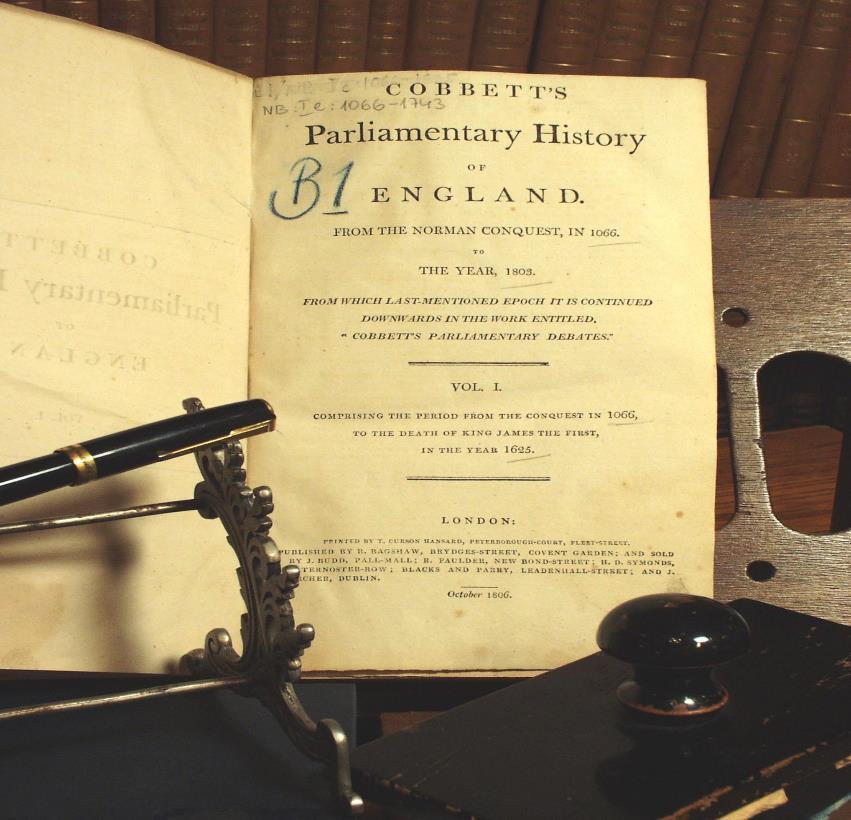 COBBETT'S
NB: Ie: 1066-1743
Parliamentary History
OF
B1
ENGLAND.
FROM THE NORMAN CONQUEST, IN 1066.
TO
THE YEAR, 1803.
FROM WHICH LAST-MENTIONED EPOCH IT IS CONTINUED
DOWNWARDS IN THE WORK ENTITLED,
"COBBETT'S PARLIAMENTARY DEBATES."
VOL. I.
COMPRISING THE PERIOD FROM THE CONQUEST IN 1066,
TO THE DEATH OF KING JAMES THE FIRST,
IN THE YEAR 1625.
LONDON:
PRINTED BY T. CURSON HANSARD, PETERBOROUGH-COURT, FLEET-STREET.
PUBLISHED BY R. BAGSHAW, BRYDGES-STREET, COVENT GARDEN; AND SOLD
BY J. BUDD, PALL-MALL; R. FAULDER, NEW BOND-STREET; H. D. SYMONDS,
TERNOSTER-ROW; BLACKS AND PARRY, LEADENHALL-STREET; AND J.
RCHER, DUBLIN.
October 1806.